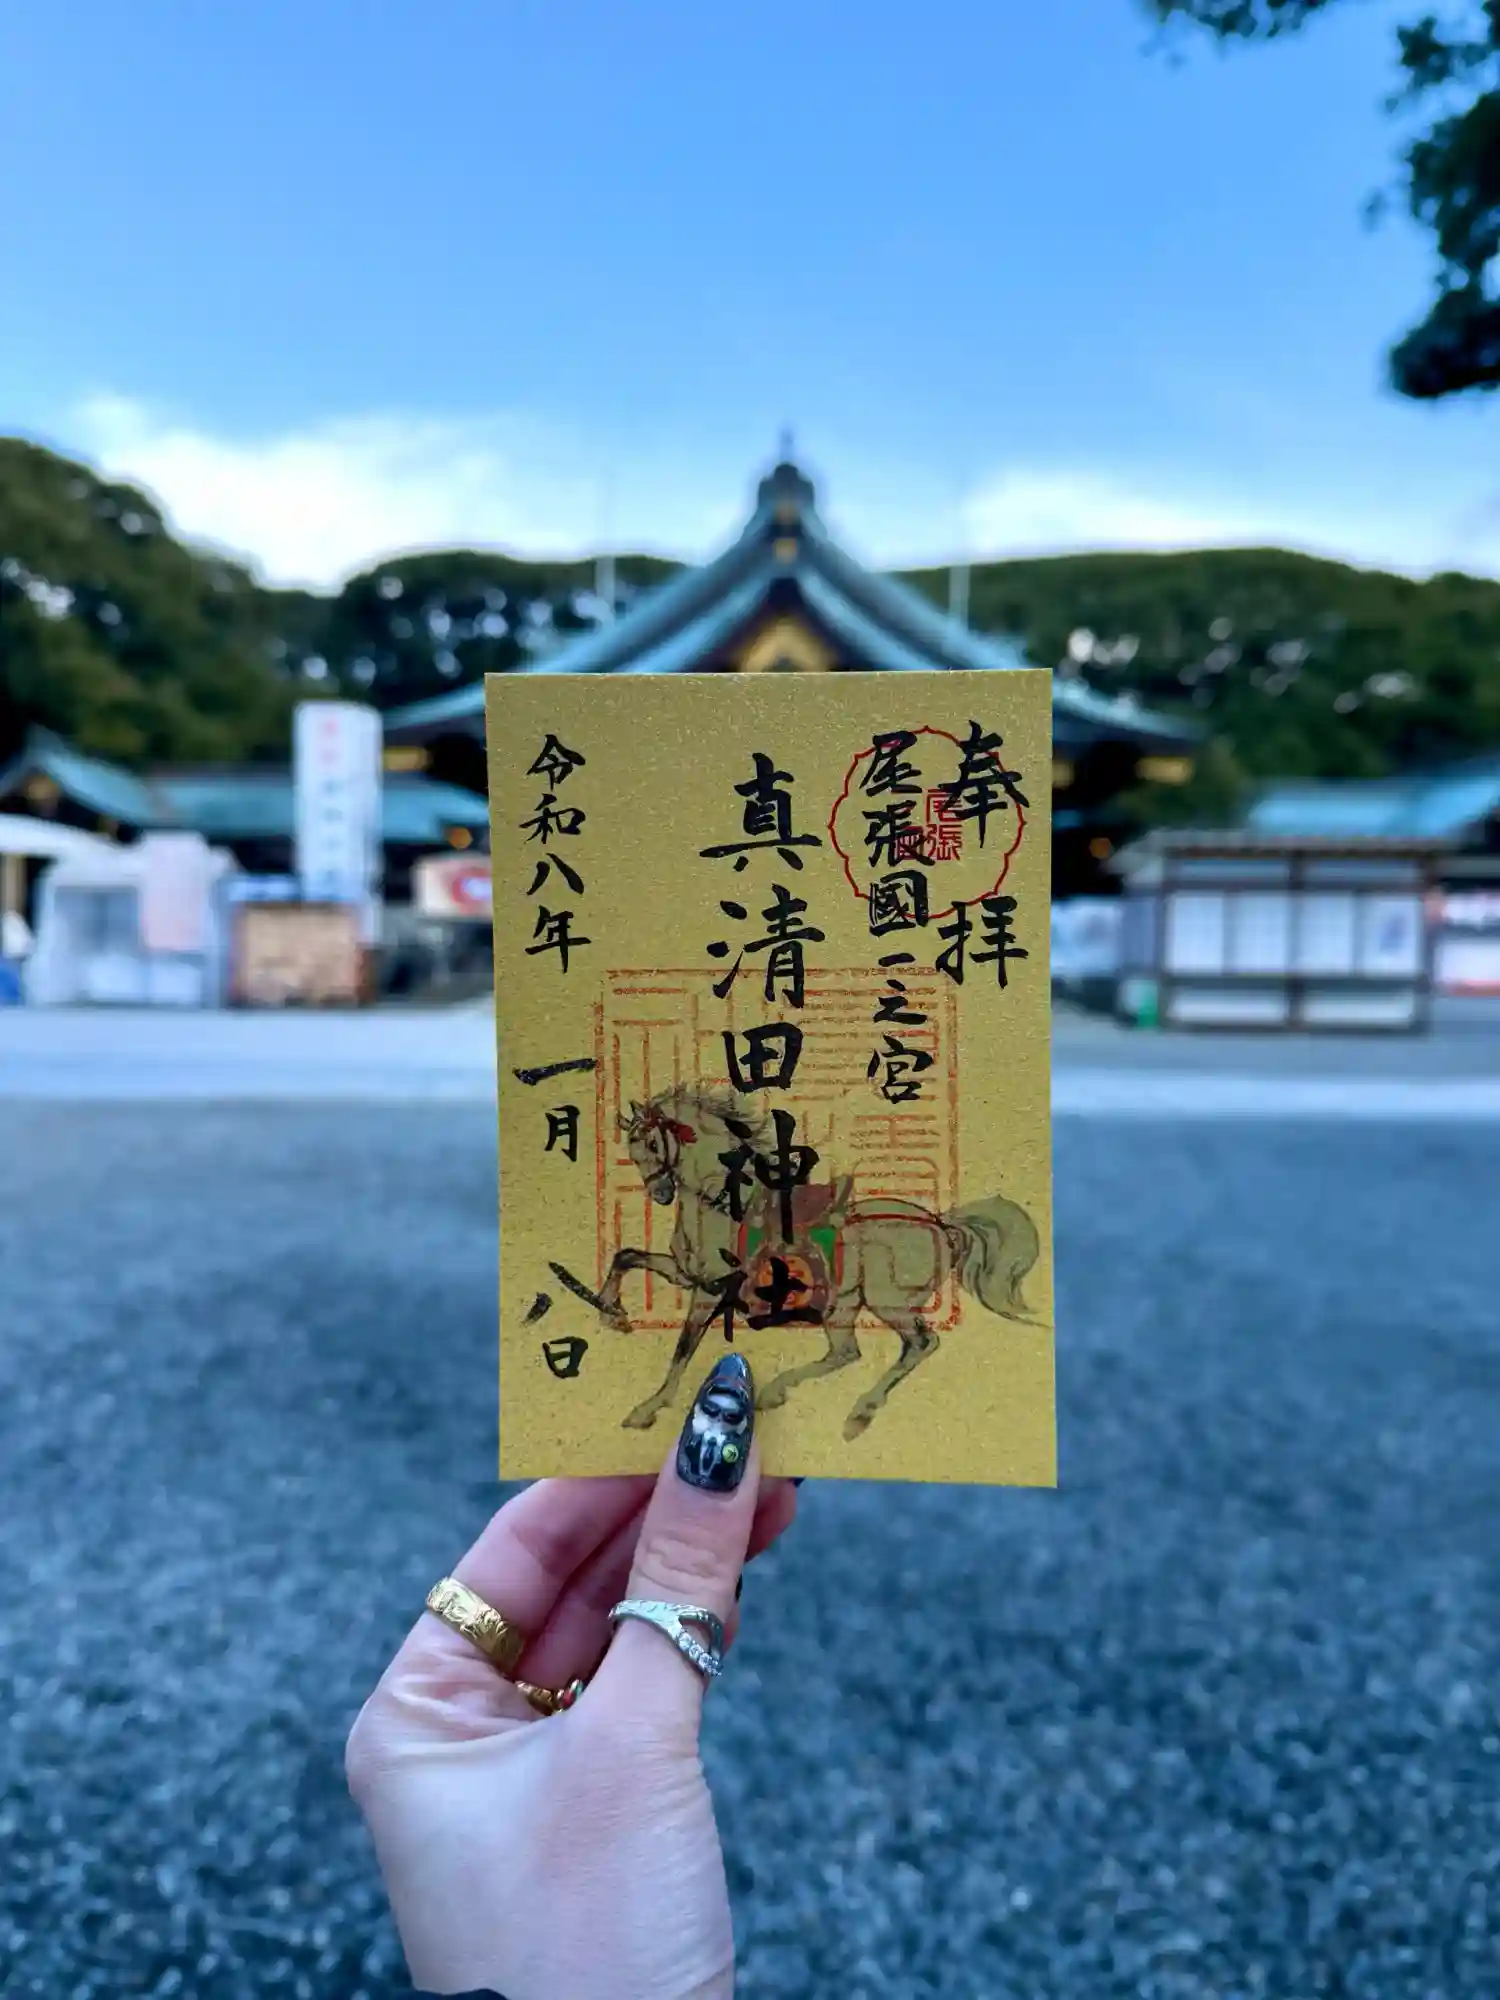 奉拝
尾張國一之宮
真清田神社
令和八年 一月 八日